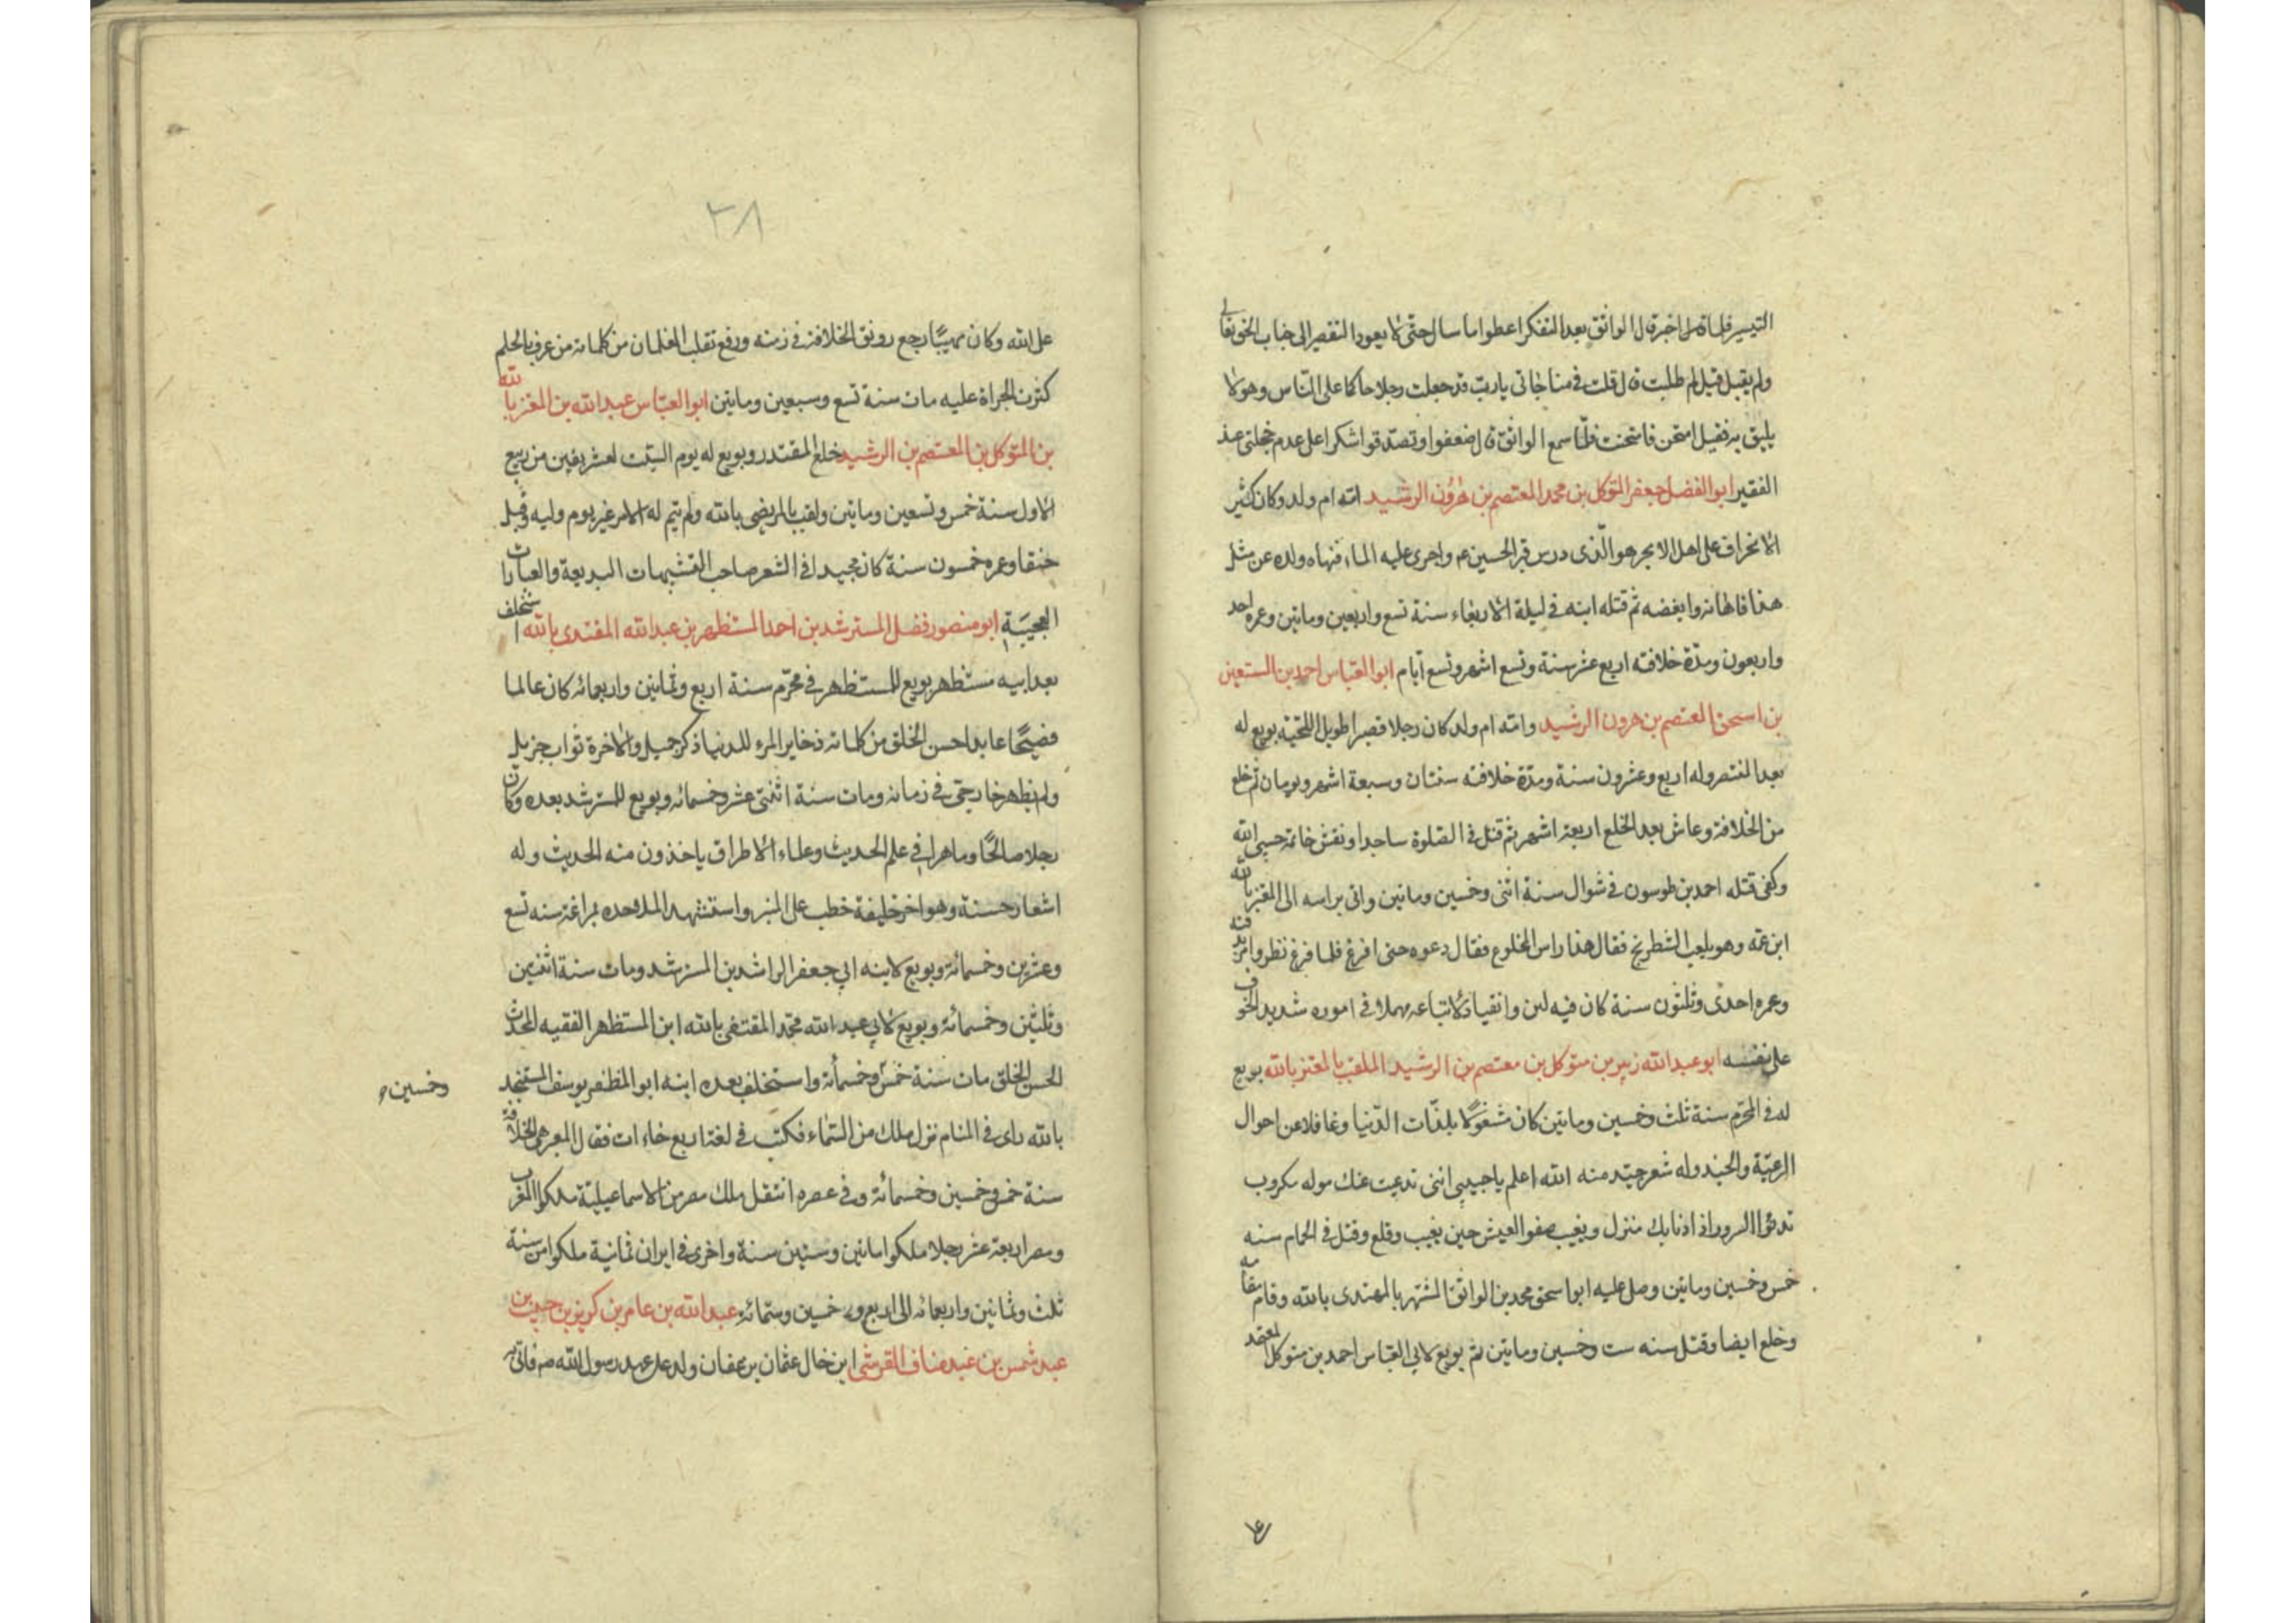 التيسر فلما اخبره قال الواثق بعد التفكر اعطوا ما سال حتى لا يعود التقصير الى جناب الحق تعالى
ولم يقبل قيل لم طلبت قال قلت في مناجاتي يا رب قد جعلت رجلا حاكما على الناس وهو لا
يليق به فقيل امتحن فامتحنت فلما سمع الواثق قال اضعفوا وتصدقوا شكرا على عدم خجلتى عند
الفقير ابو الفضل جعفر المتوكل بن محمد المعتصم بن هرون الرشيد امه ام ولد وكان كثير
الانحراف على اهل الا هو الذى درس قبر الحسين عم واجرى عليه الماء فنهاه ولده عن مثل
هذا فاهانه وابغضه ثم قتله ابنه في ليلة الاربعاء سنة تسع واربعين وماتين وعمره احد
واربعون ومدة خلافته اربع عشر سنة وتسع اشهر وتسع ايام ابو العباس احمد بن المستعين
بن اسحق المعتصم بن هرون الرشيد وامه ام ولد كان رجلا قصيرا طويل اللحية بويع له
بعد المنتصر وله اربع وعشرون سنة ومدة خلافته سنتان وسبعة اشهر ويومان ثم خلع
من الخلافة وعاش بعد الخلع اربعة اشهر ثم قتل في الصلوة ساجدا ونقش خاتمه حسبى الله
وكفى قتله احمد بن طوسون في شوال سنة اثنى وخمسين وماتين واتى براسه الى المعتز بالله
ابن عمه وهو يلعب الشطرنج فقال هذا راس المخلوع فقال دعوه حتى افرغ فلما فرغ نظر وامر بدفنه
وعمره احدى وثلثون سنة كان فيه لين وانقياد لاتباعه مهملا في اموره شديد الخوف
على نفسه ابو عبد الله زبير بن متوكل بن معتصم بن الرشيد الملقب بالمعتز بالله بويع
له في المحرم سنة ثلث وخمسين وماتين كان مشغولا بلذات الدنيا وغافلا عن احوال
الرعية والجند وله شعر جيد منه الله اعلم يا حبيبى اننى عنك موله مكروب
السرور اذا منزل ويغيب صفو العيش حين يغيب وقلع وقتل في الحمام سنه
خمس وخمسين وماتين وصل عليه ابو اسحق محمد بن الواثق المشتهر بالمهتدى بالله وقام مقامه
وخلع ايضا وقتل سنه ست وخمسين وماتين ثم بويع لابي العباس احمد بن متوكل المعتمد
٢٨
على الله وكان مهيبا رجع رونق الخلافة في زمنه ورفع تغلب الغلمان من كلماته من عرف بالحلم
كثرت الجراة عليه مات سنة تسع وسبعين وماتين ابو العباس عبد الله بن المعتز بالله
بن المتوكل بن المعتصم بن الرشيد خلع المقتدر وبويع له يوم السبت لعشر بقين من ربيع
الاول سنة خمس وتسعين وماتين ولقب بالمرتضى بالله ولم يتم له الامر غير يوم وليله وقتل
خنقا وعمره خمسون سنة كان مجيدا في الشعر صاحب التشبيهات البديعة والعبارات
العجيبة ابو منصور فضل المسترشد بن احمد المستظهر بن عبد الله المقتدى بالله استخلف
بعد ابيه مستظهر بويع للمستظهر في محرم سنة اربع وثمانين واربعمائه كان عالما
فصيحا عابدا حسن الخلق من كلماته ذخاير المرء للدنيا ذكر جميل والاخرة ثواب جزيل
ولم يظهر خارجى في زمانه ومات سنة اثنتى عشر وخمسمائه وبويع للمسترشد بعده وكان
رجلا صالحا وماهرا في علم الحديث وعلماء الاطراف ياخذون منه الحديث وله
اشعار حسنة وهو اخر خليفة خطب على المنبر واستشهد الملاحده بمراغة سنه تسع
وعشرين وخمسمائة وبويع لابنه ابي جعفر الراشد بن المسترشد ومات سنة اثنتين
وثلثين وخمسمائة وبويع لابي عبد الله محمد المقتفى بالله ابن المستظهر الفقيه المحدث
الحسن الخلق مات سنة خمس وخمسمأة واستخلف بعده ابنه ابو المظفر يوسف المستنجد
وخمسين
بالله راى في المنام نزل ملك من السماء فكتب في لغة اربع خاءات فقال المعبر هي الخلافة
سنة خمس وخمسين وخمسمائة وفي عصره انتقل ملك مصر من الاسماعيلية ملكوا المغرب
ومصر اربعة عشر رجلا ملكوا ماتين وستين سنة واخرى في ايران ثمانية ملكوا من سنة
ثلث وثمانين واربعمائه الى اربع وخمسين وستمائه عبد الله بن عامر بن كريز بن حبيب بن
عبد شمس بن عبد مناف القرشى ابن خال عثمان بن عفان ولد على عهد رسول الله صم فاتى به